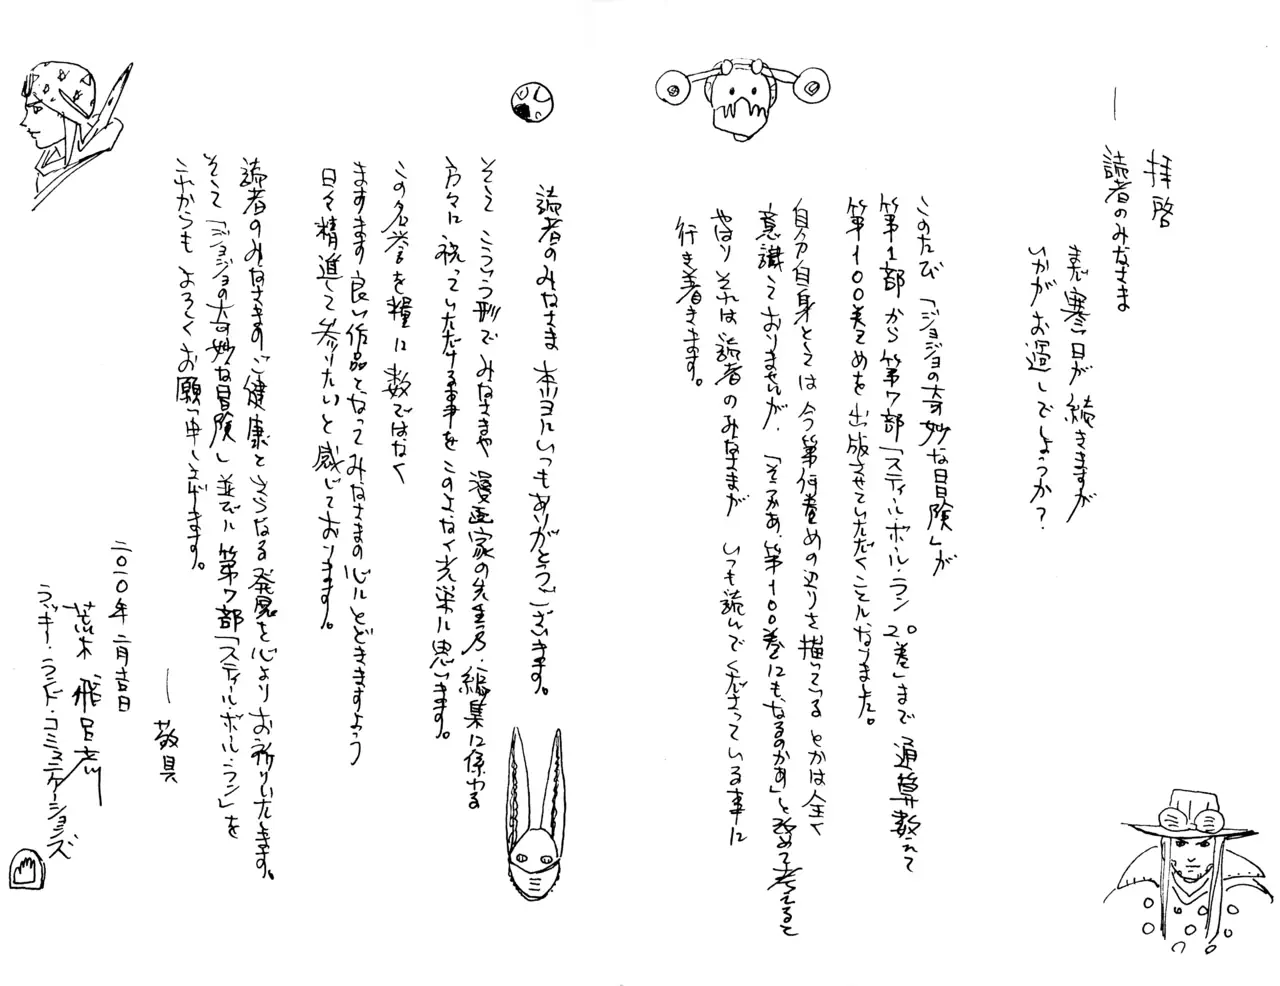 拝啓
― 読者のみなさま
まだ寒い日が続きますが
いかがお過しでしょうか？
このたび「ジョジョの奇妙な冒険」が
第1部から第7部「スティール・ボール・ラン 20巻」まで通算数えて
第100巻めを出版させていただくことになりました。
自分自身としては今第何巻めの辺りを描いているとかは全く
意識しておりませんが、「そうかあ、第100巻にもなるのかあ」と改めて考えるて
やはりそれは読者のみなさまが いつも読んでくださっている事に
行き着きます。
読者のみなさま 本当にいつもありがとうございます。
そして こういう形でみなさまや 漫画家の先生方・編集に係わる
方々に祝っていただける事をこのよなく光栄に思います。
この名誉を糧に 数ではなく
ますます良い作品となってみなさまの心にとどきますよう
日々精進して参りたいと感じております。
読者のみなさまのご健康とさらなる発展を心よりお祈りいたします。
そして「ジョジョの奇妙な冒険」並びに第7部「スティール・ボール・ラン」を
これからも よろしくお願い申し上げます。
― 敬具
二〇一〇年 二月吉日
荒木飛呂彦
ラッキー・ランド・コミュニケーションズ